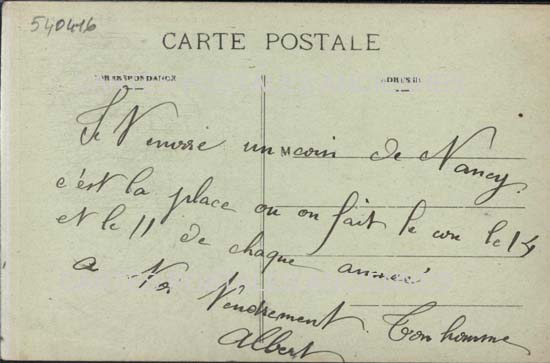 540416
CARTE POSTALE
CORRESPONDANCE
ADRESSE
Je t'envoie un coin de Nancy
c'est la place ou on fait le con le 14
et le 11 de chaque année
a Vendrement ton homme
Albert